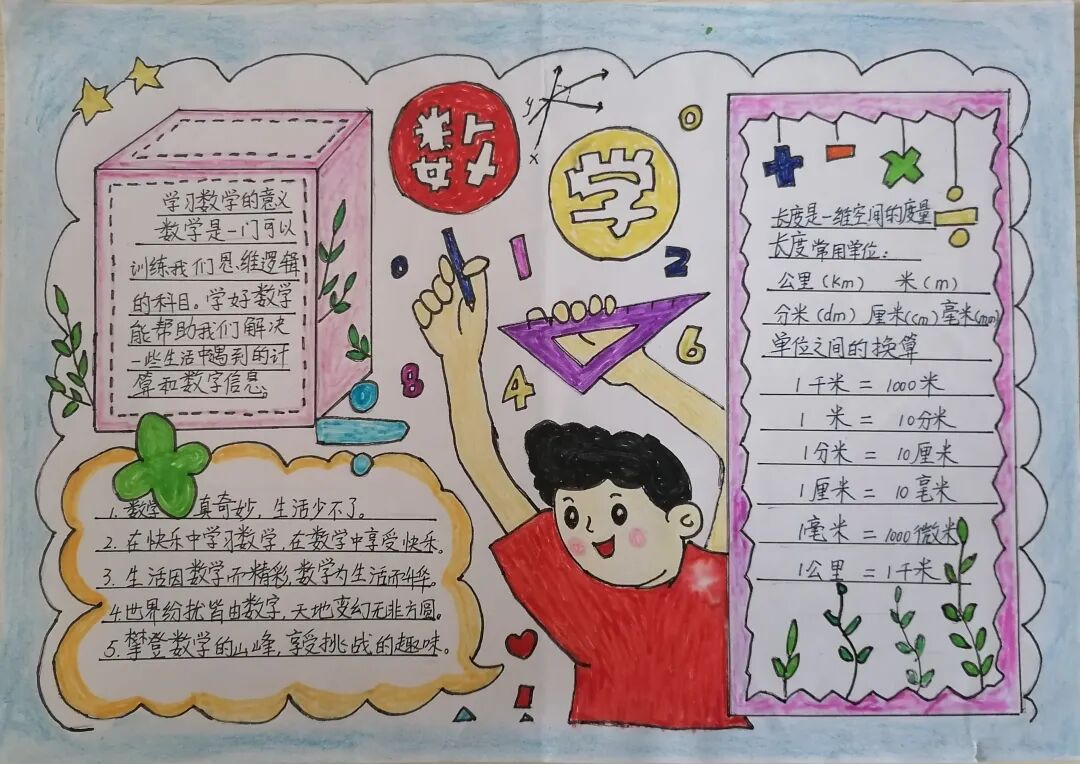 数学
y
x
0
1
2
0
6
4
8
学习数学的意义
数学是一门可以
训练我们思维逻辑
的科目。学好数学
能帮助我们解决
一些生活中遇到的计
算和数字信息。
1. 数学 真奇妙，生活少不了。
2. 在快乐中学习数学，在数学中享受快乐。
3. 生活因数学而精彩，数学为生活而
4. 世界纷扰皆由数字，天地变幻无非方圆。
5. 攀登数学的山峰，享受挑战的趣味。
长度是一维空间的度量
长度常用单位：
公里（km） 米（m）
分米（dm）厘米（cm）毫米（mm）
单位之间的换算
1千米 = 1000米
1 米 = 10分米
1分米 = 10厘米
1厘米 = 10毫米
1毫米 = 1000微米
1公里 = 1千米